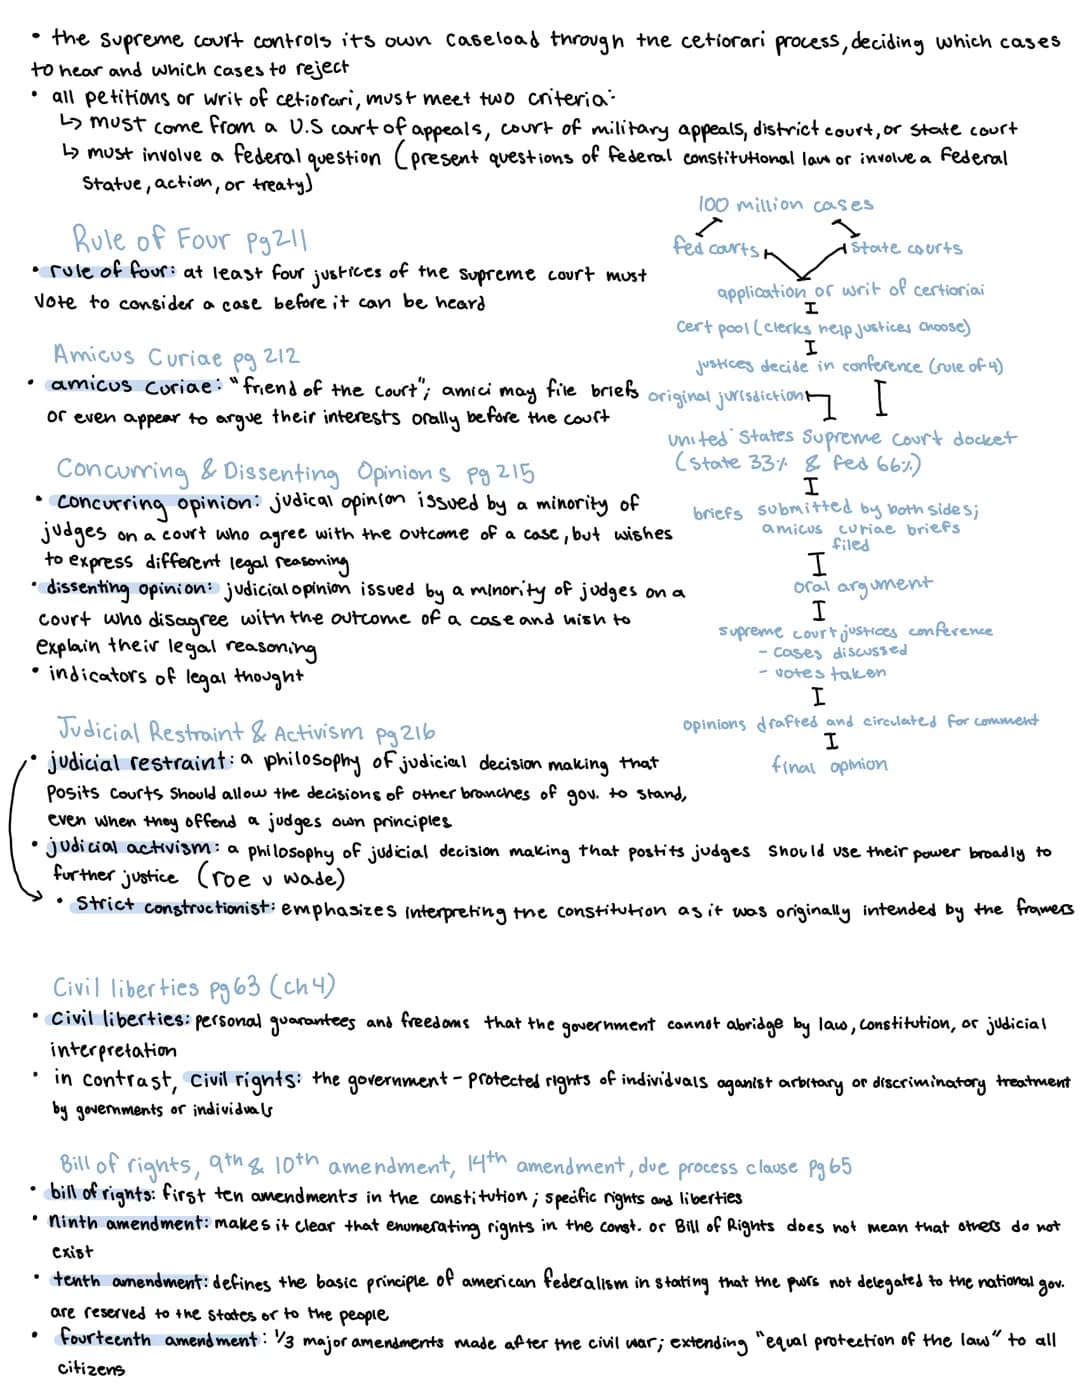 • the supreme court controls its own caseload through the cetiorari process, deciding which cases
to hear and which cases to reject
• all petitions or writ of cetiorari, must meet two criteria:
↳ must come from a U.S court of appeals, court of military appeals, district court, or state court
↳ must involve a federal question (present questions of federal constitutional law or involve a federal
statue, action, or treaty)
Rule of Four pg 211
• rule of four: at least four justices of the supreme court must
vote to consider a case before it can be heard
Amicus Curiae pg 212
• amicus curiae: "friend of the court"; amici may file briefs
or even appear to argue their interests orally before the court
Concurring & Dissenting Opinions pg 215
• concurring opinion: judical opinion issued by a minority of
judges on a court who agree with the outcome of a case, but wishes
to express different legal reasoning
• dissenting opinion: judicial opinion issued by a minority of judges on a
court who disagree with the outcome of a case and wish to
explain their legal reasoning
• indicators of legal thought
100 million cases
fed courts
state courts
application or writ of certioriai
cert pool (clerks help justices choose)
justices decide in conference (rule of 4)
original jurisdiction
united States Supreme Court docket
(state 33% & fed 66%)
briefs submitted by both sides;
amicus curiae briefs
filed
oral argument
supreme court justices conference
- cases discussed
- votes taken
opinions drafted and circulated for comment
final opinion
Judicial Restraint & Activism pg 216
• judicial restraint: a philosophy of judicial decision making that
posits courts should allow the decisions of other branches of gov. to stand,
even when they offend a judges own principles
• judicial activism: a philosophy of judicial decision making that postits judges should use their power broadly to
further justice (roe v wade)
• Strict constructionist: emphasizes interpreting the constitution as it was originally intended by the framers
Civil liberties pg 63 (ch 4)
• civil liberties: personal guarantees and freedoms that the government cannot abridge by law, constitution, or judicial
interpretation
• in contrast, civil rights: the government-protected rights of individuals aganist arbitary or discriminatory treatment
by governments or individuals
Bill of rights, 9th & 10th amendment, 14th amendment, due process clause pg 65
• bill of rights: first ten amendments in the constitution; specific rights and liberties
• ninth amendment: makes it clear that enumerating rights in the const. or Bill of Rights does not mean that others do not
exist
• tenth amendment: defines the basic principle of american federalism in stating that the pwrs not delegated to the national gov.
are reserved to the states or to the people
• fourteenth amendment: 1/3 major amendments made after the civil war; extending "equal protection of the law" to all
citizens